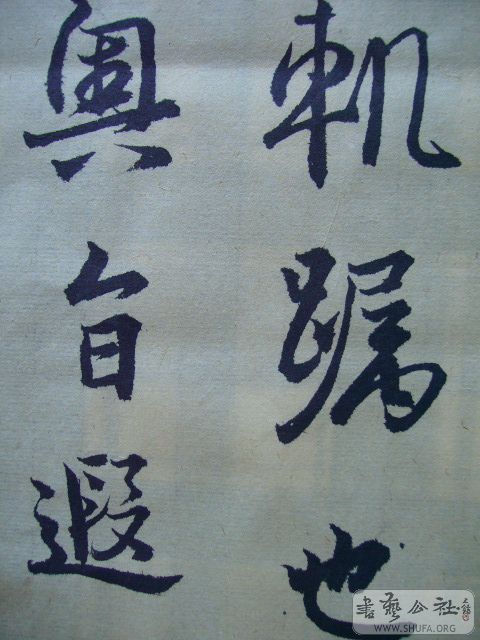 軌躅也
奥旨遐
書藝公社
WWW.SHUFA.ORG